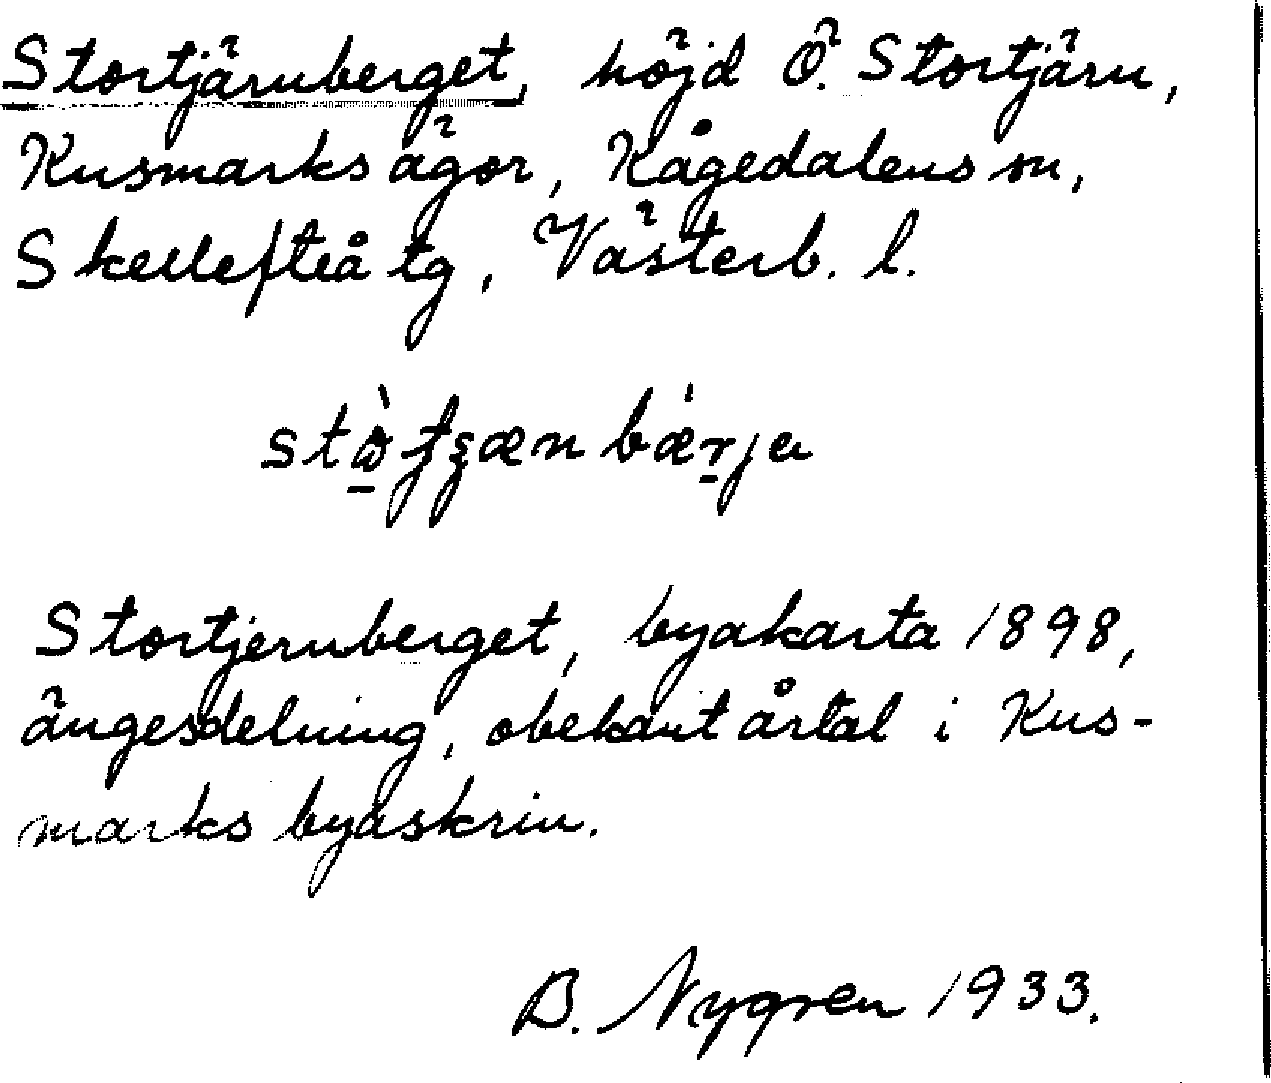 Stortjärnberget, höjd Ö. Stortjärn,
Kusmarks ägor, Kågedalens sn,
Skellefteå tg, Västerb. l.
Stortjernberget, byakarta 1898,
ängesdelning, obekant årtal i Kus-
marks byaskrin.
B. Nygren 1933.